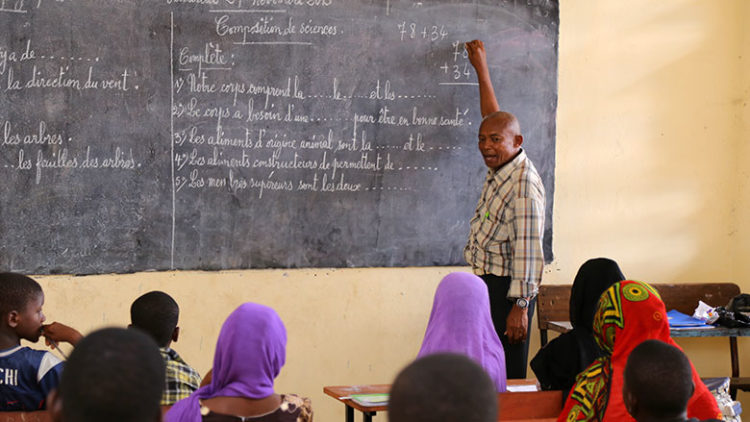 ya de ..........
la direction du vent.
les arbres.
...les feuilles des arbres.
Composition de sciences.
Complète :
1°/ Notre corps comprend la.......le.......et les.........
2°/ Le corps a besoin d'une......... pour être en bonne santé.
3°/ Les aliments d'origine animal sont la ...... et le ......
4°/ Les aliments constructeurs de permettent de .........
5°/ Les membres supérieurs sont les deux .........
78 + 34
78
+ 34
CHI